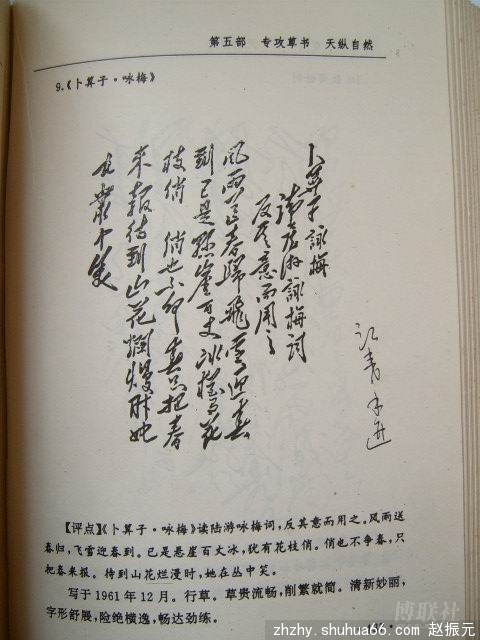 第五部 专攻草书 天纵自然
9.《卜算子·咏梅》
卜算子 詠梅
讀陸游詠梅詞
反其意而用之
風雨送春歸飛雪迎春
到已是懸崖百丈冰猶有花
枝俏 俏也不爭春只把春
來報待到山花爛熳時她
在叢中笑
江青
【评点】《卜算子·咏梅》读陆游咏梅词，反其意而用之。风雨送
春归，飞雪迎春到。已是悬崖百丈冰，犹有花枝俏。俏也不争春，只
把春来报。待到山花烂漫时，她在丛中笑。
写于1961年12月。行草。草贵流畅，削繁就简。清新妙丽，
字形舒展，险绝横逸，畅达劲练。
博联社
zhzhy.shuhua66.com 赵振元